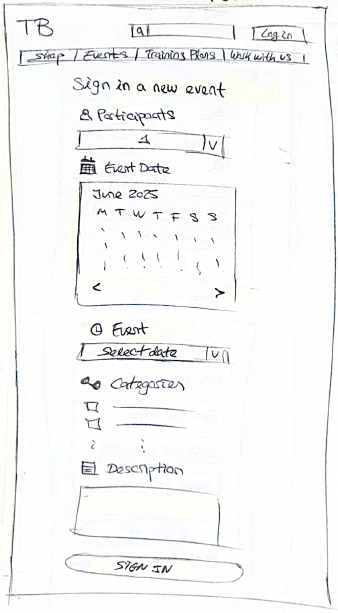 TB Log in
Shop | Events | Training Plans | Work with us |
Sign in a new event
Participants
1
Event Date
June 2025
M T W T F S S
< >
Event
Select date
Categories
Description
SIGN IN